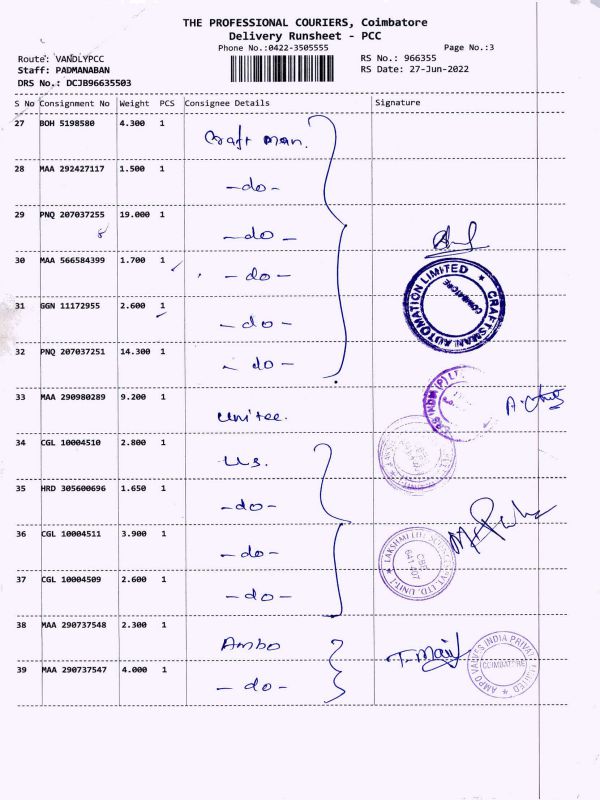 THE PROFESSIONAL COURIERS, Coimbatore
Delivery Runsheet - PCC
Phone No.:0422-3505555 Page No.:3
Route: VANDLYPCC RS No.: 966355
Staff: PADMANABAN RS Date: 27-Jun-2022
DRS No.: DCJB96635503
S No Consignment No Weight PCS Consignee Details Signature
27 BOH 5198580 4.300 1 Craft man.
28 MAA 292427117 1.500 1 -do-
29 PNQ 207037255 19.000 1 -do-
8
30 MAA 566584399 1.700 1 -do-
CRAFTSMAN AUTOMATION LIMITED ★ COIMBATORE
31 GGN 11172955 2.600 1 -do-
32 PNQ 207037251 14.300 1 -do-
33 MAA 290980289 9.200 1 Unitec.
34 CGL 10004510 2.800 1 U.S.
35 HRD 305600696 1.650 1 -do-
36 CGL 10004511 3.900 1 -do-
★ LAKSHMI LIFE SCIENCES PVT. LTD. UNIT-I CBE 641 407
37 CGL 10004509 2.600 1 -do-
38 MAA 290737548 2.300 1 Ambo T. Mani
AMPO VALVES INDIA PRIVATE LIMITED ★ COIMBATORE
39 MAA 290737547 4.000 1 -do-